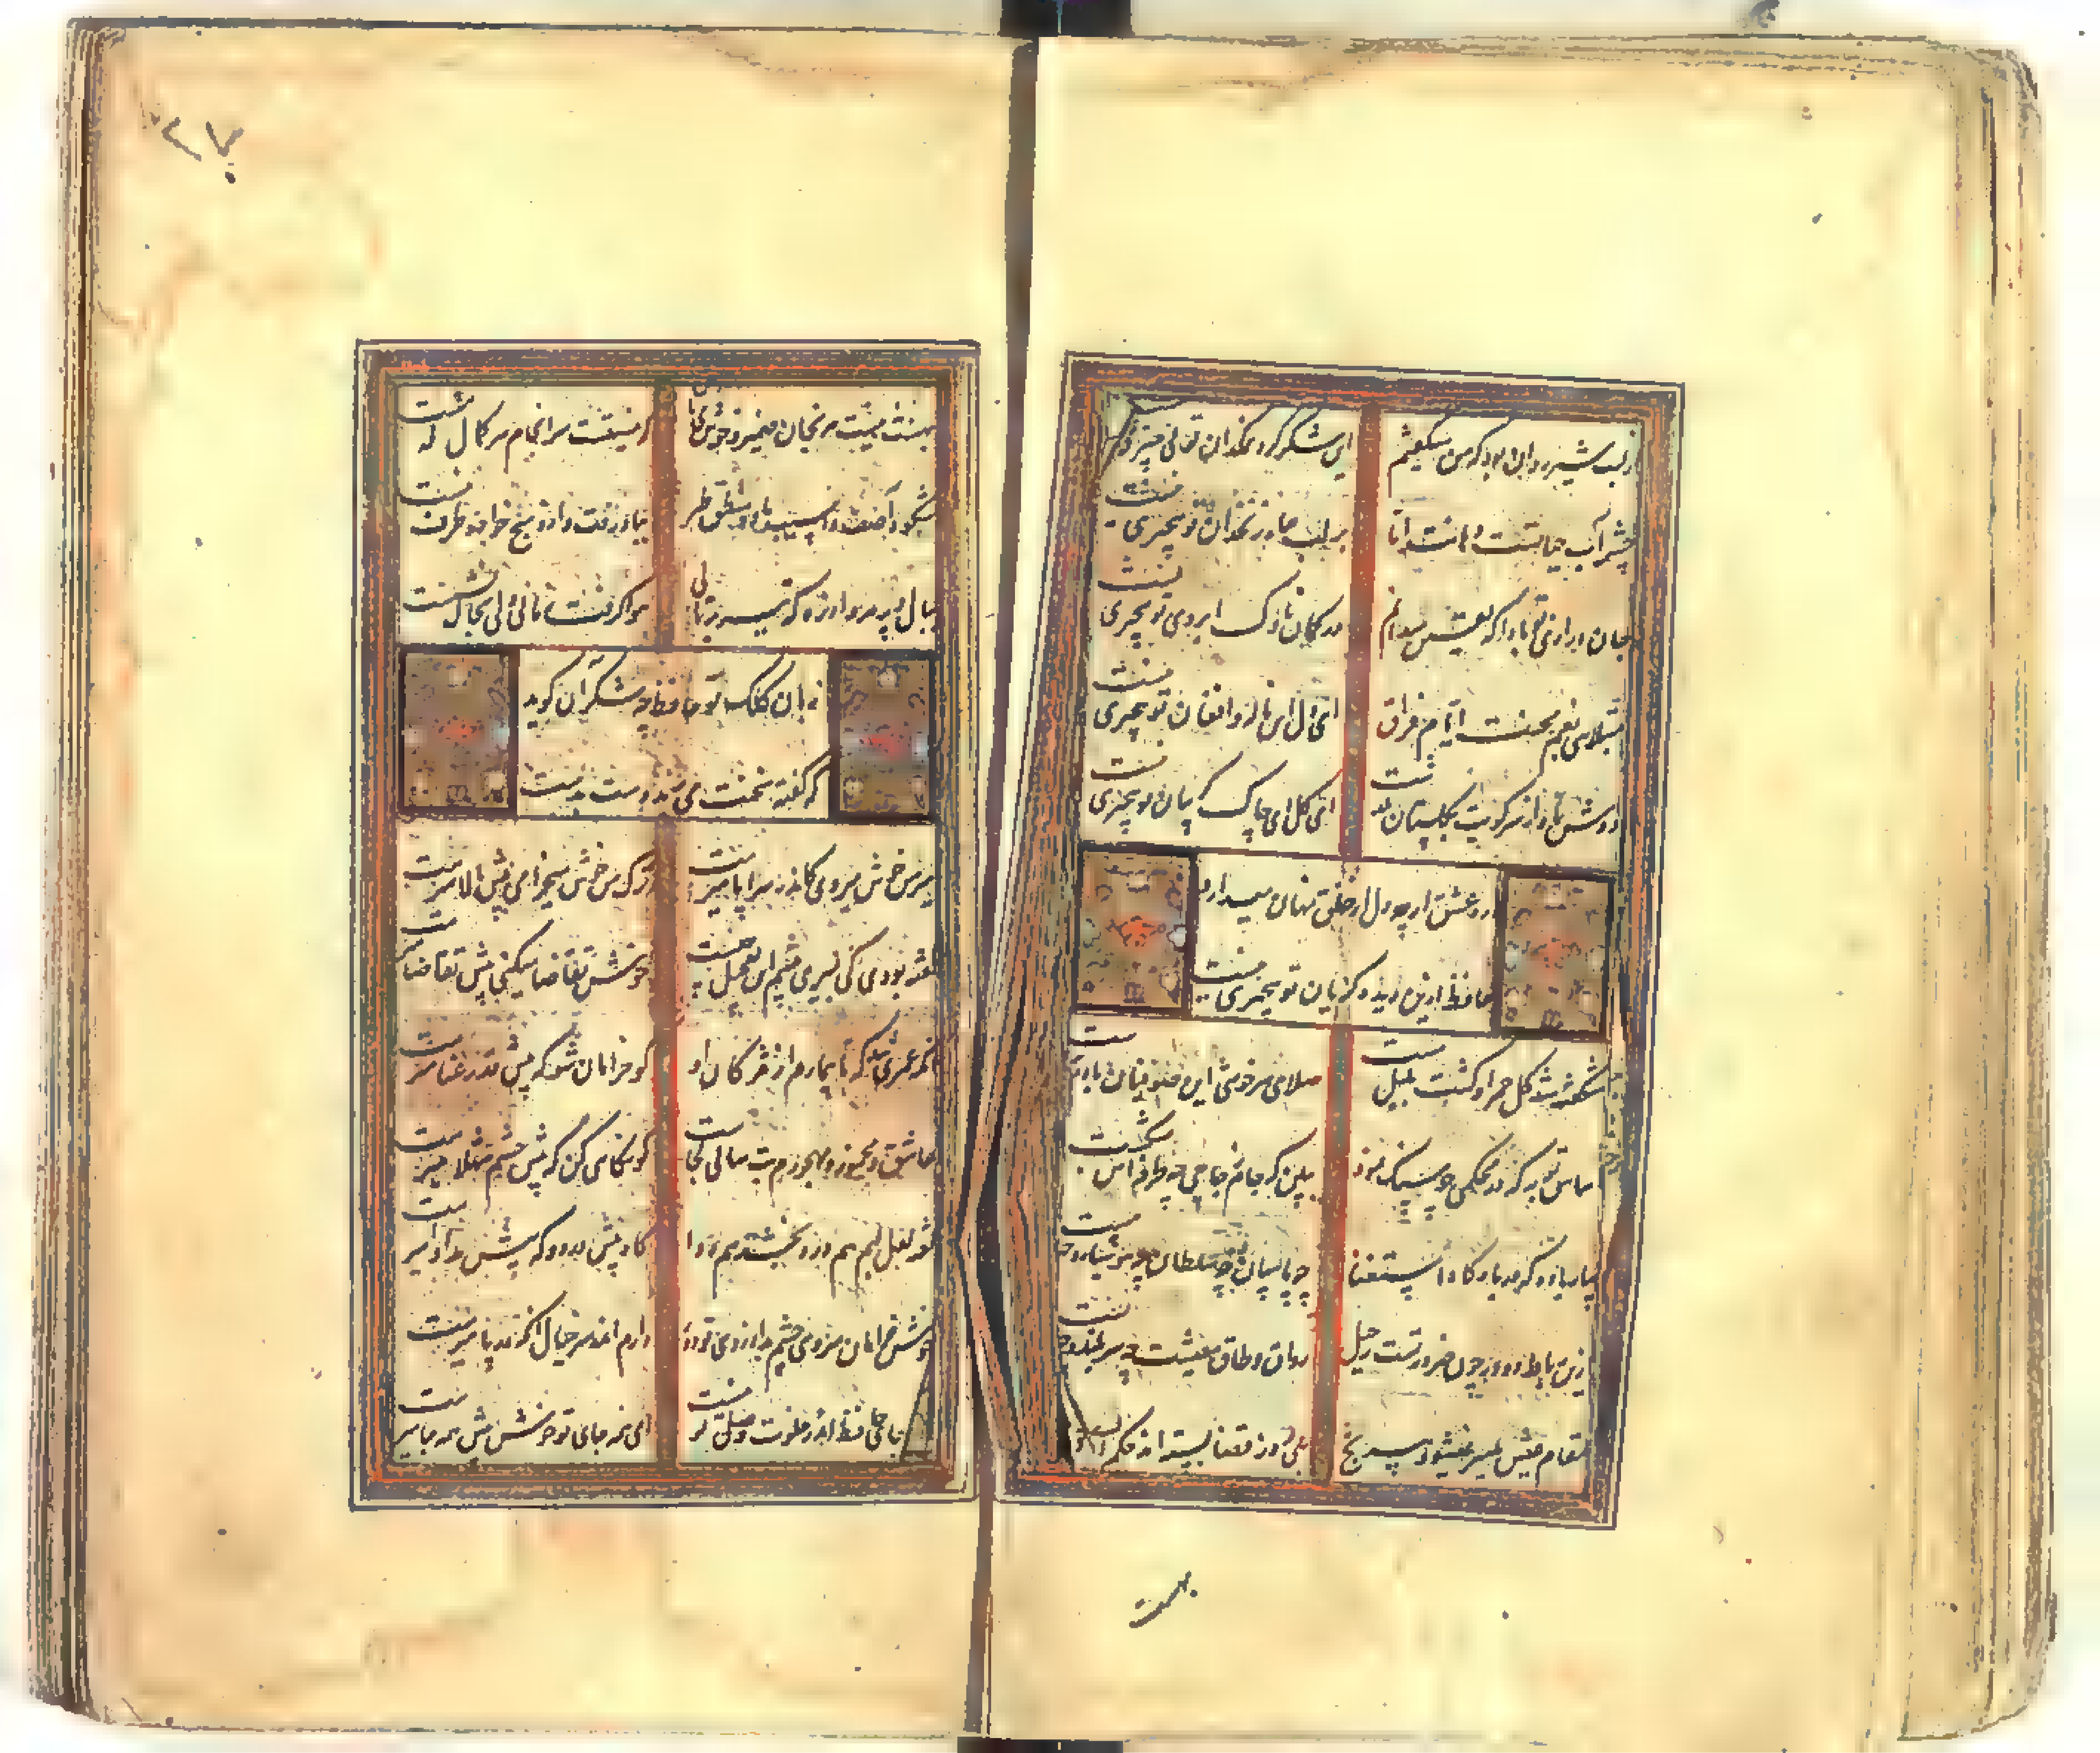 از لب شیر روان بود که من میگفتم این شکر گرد نمکدان تو بی چیزی نیست
چشمه آب حیاتست دهانت اما بر لب چاه زنخدان تو بیچیزی نیست
جان درازی تو بادا که یقین میدانم در کمان ناوک ابروی تو بیچیزی نیست
مبتلایی بغم محنت ایام فراق ای دل این ناله و افغان تو بیچیزی نیست
دوش باد از سر کویت بگلستان بگذشت ای گل این چاک گریبان تو بیچیزی نیست
درد عشق ار چه دل از خلق نهان میدارد
حافظ این دیده گریان تو بیچیزی نیست
شکفته شد گل حمرا و گشت بلبل مست صلای سرخوشی ای صوفیان باده
اساس توبه که در محکمی چو سنگ نمود ببین که جام زجاجی چه طرفه اش بشکست
بیار باده که در بارگاه استغنا چه پاسبان و چه سلطان چه هوشیار و چه مست
ازین رباط دو در چون ضرورتست رحیل رواق و طاق معیشت چه سربلند و چه پست
مقام عیش میسر نمیشود بی رنج بلی روز قضا بسته اند حکم الست
بهست
۲۷
بهست و نیست مرنجان ضمیر و خوش میباش که نیستیست سرانجام هر کمال که هست
شکوه آصفی و اسب باد و منطق طیر بباد رفت و ازو هیچ خواجه طرف نبست
ببال و پر مرو از ره که تیر پرتابی هوا گرفت زمانی ولی بخاک نشست
زبان کلک تو حافظ چه شکر آن گوید
که گفته سخنت می برند دست بدست
میر من خوش میروی کاندر سراپا میرمت ترک من خوش میخرامی پیش بالا میرمت
گفته بودی کی بمیری پیشم این تعجیل چیست خوش تقاضا میکنی پیش تقاضا میرمت
آنکه عمری شد که تا بیمارم از مژگان او گو خرامان شو که پیش قد رعنا میرمت
عاشق و مخمور و مهجورم بت ساقی کجاست گو نگاهی کن که پیش چشم شهلا میرمت
گفته لعل لبم هم درد بخشد هم دوا گاه پیش درد و گه پیش مداوا میرمت
خوش خرامان میروی چشم بد از روی تو دور دارم اندر سر خیال آنکه در پا میرمت
جای حافظ اندر خلوت وصل تو نیست ای همه جای تو خوش پیش همه جا میرمت